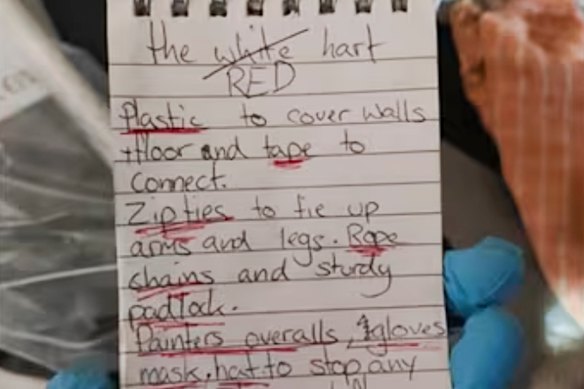 the white hart
RED
Plastic to cover walls
+floor and tape to
connect.
Zip ties to tie up
arms and legs. Rope
chains and sturdy
padlock.
Painters overalls, +gloves
mask, hat to stop any